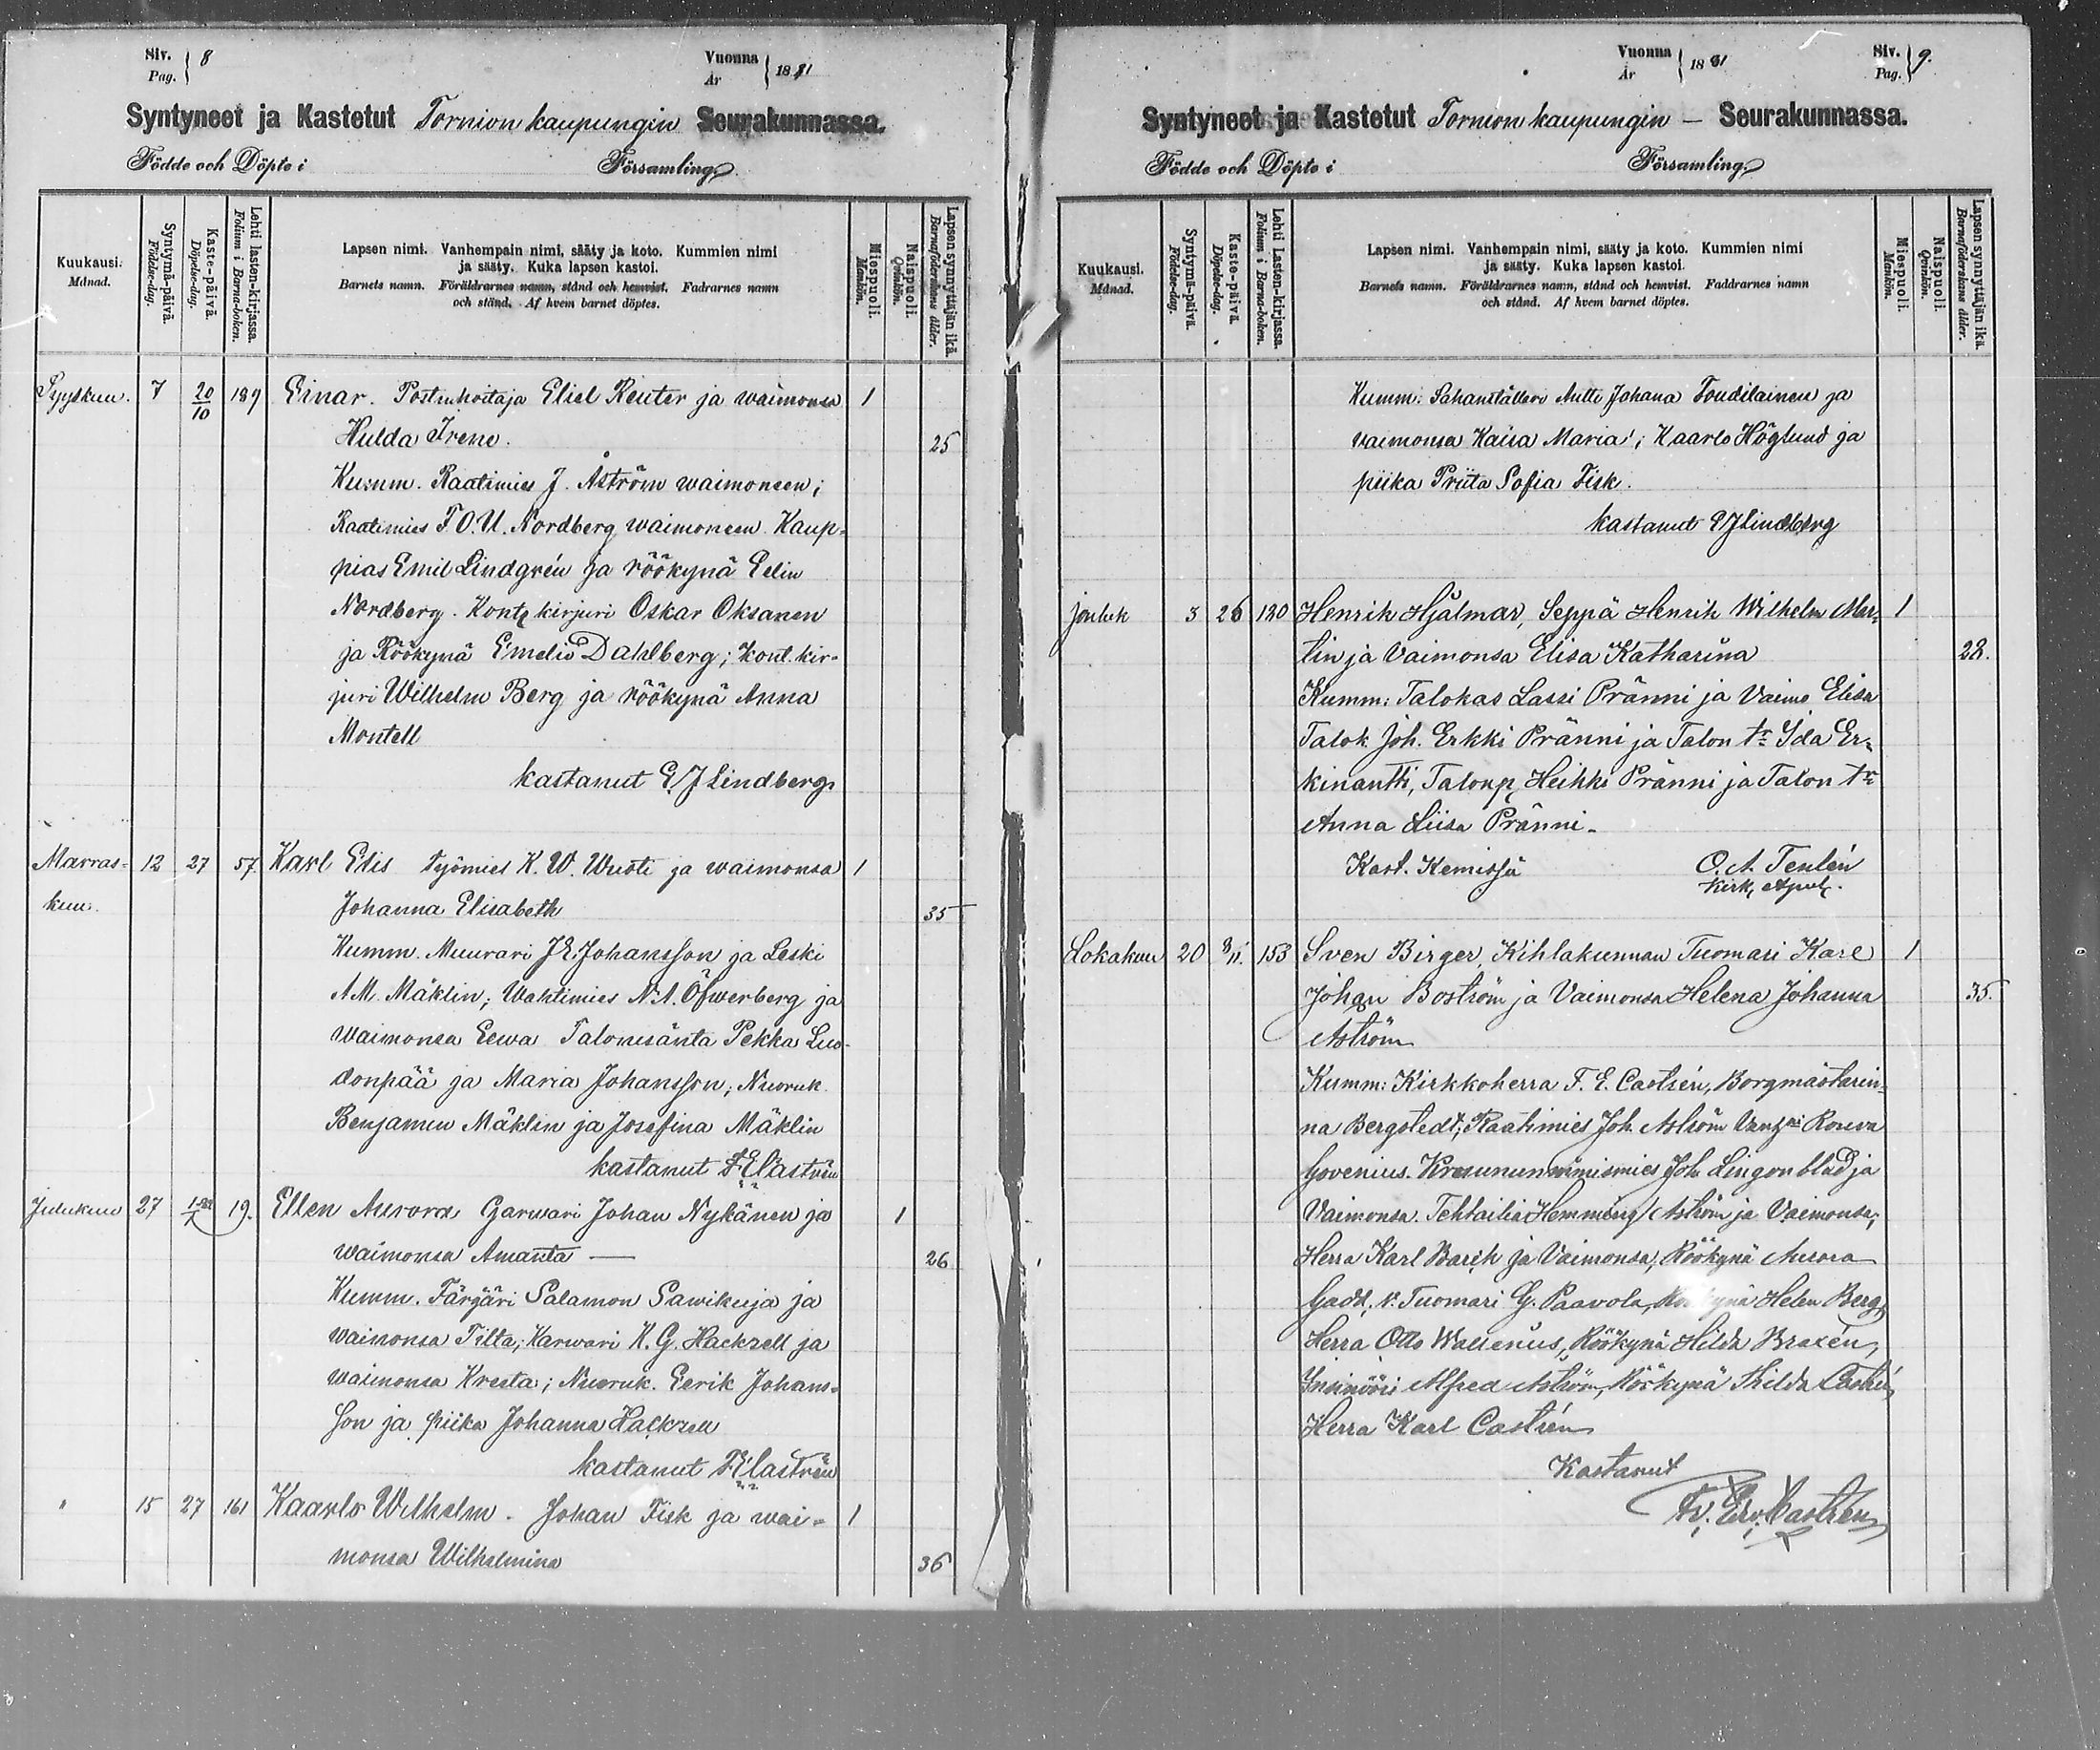 Siv. 8
Pag.
Vuonna 1881
År
Syntyneet ja Kastetut Tornion kaupungin Seurakunnassa.
Födde och Döpte i Församling.
Kuukausi. Månad.
Syntymä-päivä. Födelse-dag.
Kaste-päivä. Döpelse-dag.
Lehti lasten-kirjassa. Folium i Barna-boken.
Lapsen nimi. Vanhempain nimi, sääty ja koto. Kummien nimi
ja sääty. Kuka lapsen kastoi.
Barnets namn. Föräldrarnes namn, stånd och hemvist. Fadrarnes namn
och stånd. Af hvem barnet döptes.
Miespuoli. Mankön.
Naispuoli. Qvinkön.
Lapsen synnyttäjän ikä. Barnaföderskans ålder.
Syyskuu. 7 20/10 189 Einar. Postinhoitaja Eliel Reuter ja waimonsa 1
Hulda Irene. 25
Kumm. Raatimies J. Åström waimoneen;
Raatimies F.O.U. Nordberg waimoneen. Kaup-
pias Emil Lindgrén ja röökynä Eelin
Nordberg. Kont. kirjuri Oskar Oksanen
ja Röökynä Emelie Dahlberg; kont. kir-
juri Wilhelm Berg ja röökynä Anna
Montell
kastanut E J Lindberg
Marras- 12 27 57. Karl Elis työmies K. W. Wuoti ja waimonsa 1
kuu. Johanna Elisabeth 35
Kumm. Muurari J E Johansson ja Leski
A M. Mäklin; Wahtimies N. A. Öfwerberg ja
waimonsa Eewa Talonisäntä Pekka Luo-
donpää ja Maria Johansson; Nuoruk.
Benjamin Mäklin ja Josefina Mäklin
kastanut F E Castrén
Joulukuu 27 19. Ellen Aurora Garwari Johan Nykänen ja 1
waimonsa Amanta — 26
Kumm. Färgäri Salamon Sawikuja ja
waimonsa Tilta; Karwari K. G. Hackzell ja
waimonsa Kreeta; Nuoruk. Eerik Johans-
son ja piika Johanna Hackzell
kastanut F E Castrén
" 15 27 161 Kaarlo Wilhelm. Johan Fisk ja wai- 1
monsa Wilhelmina 36
Vuonna 1881
År
Siv. 9.
Pag.
Syntyneet ja Kastetut Tornion kaupungin — Seurakunnassa.
Födde och Döpte i Församling.
Kuukausi. Månad.
Syntymä-päivä. Födelse-dag.
Kaste-päivä. Döpelse-dag.
Lehti Lasten-kirjassa. Folium i Barna-boken.
Lapsen nimi. Vanhempain nimi, sääty ja koto. Kummien nimi
ja sääty. Kuka lapsen kastoi.
Barnets namn. Föräldrarnes namn, stånd och hemvist. Faddrarnes namn
och stånd. Af hvem barnet döptes.
Miespuoli. Mankön.
Naispuoli. Qvinkön.
Lapsen synnyttäjän ikä. Barnaföderskans ålder.
Kumm: Antti Johana Toudilainen ja
vaimonsa Kaisa Maria; Kaarlo Höglund ja
piika Priita Sofia Fisk.
kastanut E J Lindberg
jouluk 3 26 130 Henrik Hjalmar, Seppä Henrik Wilhelm Mar- 1
tin ja Vaimonsa Elisa Katharina 28.
Kumm: Talokas Lassi Pränni ja Vaimo Elisa
Talok. Joh. Erkki Pränni ja Talon tr Ida Er-
kinantti, Talonp. Heikki Pränni ja Talon tr
Anna Liisa Pränni.
Kast. Kemissä O. A. Tenlén
Kirk. Apul.
Lokakuu 20 3/11. 153 Sven Birger, Kihlakunnan Tuomari Karl 1
Johan Boström ja Vaimonsa Helena Johanna 35.
Åström
Kumm: Kirkkoherra F. E. Castrén, Borgmästarin-
na Bergstedt; Raatimies Joh. Åström Rouva
Govenius. Kruununnimismies Joh. Lingonblad ja
Vaimonsa. Tehtailia Hemming Åström ja Vaimonsa;
Herra Karl Barck ja Vaimonsa, Röökynä Aurora
Gadd, v. Tuomari G. Paavola, Röökynä Helen Berg,
Herra Otto Wallenius, Röökynä Hilda Braxén,
Insinööri Alfred Åström, Röökynä Thilda Castrén
Herra Karl Castrén
Kastanut
Fr. Er. Castrén